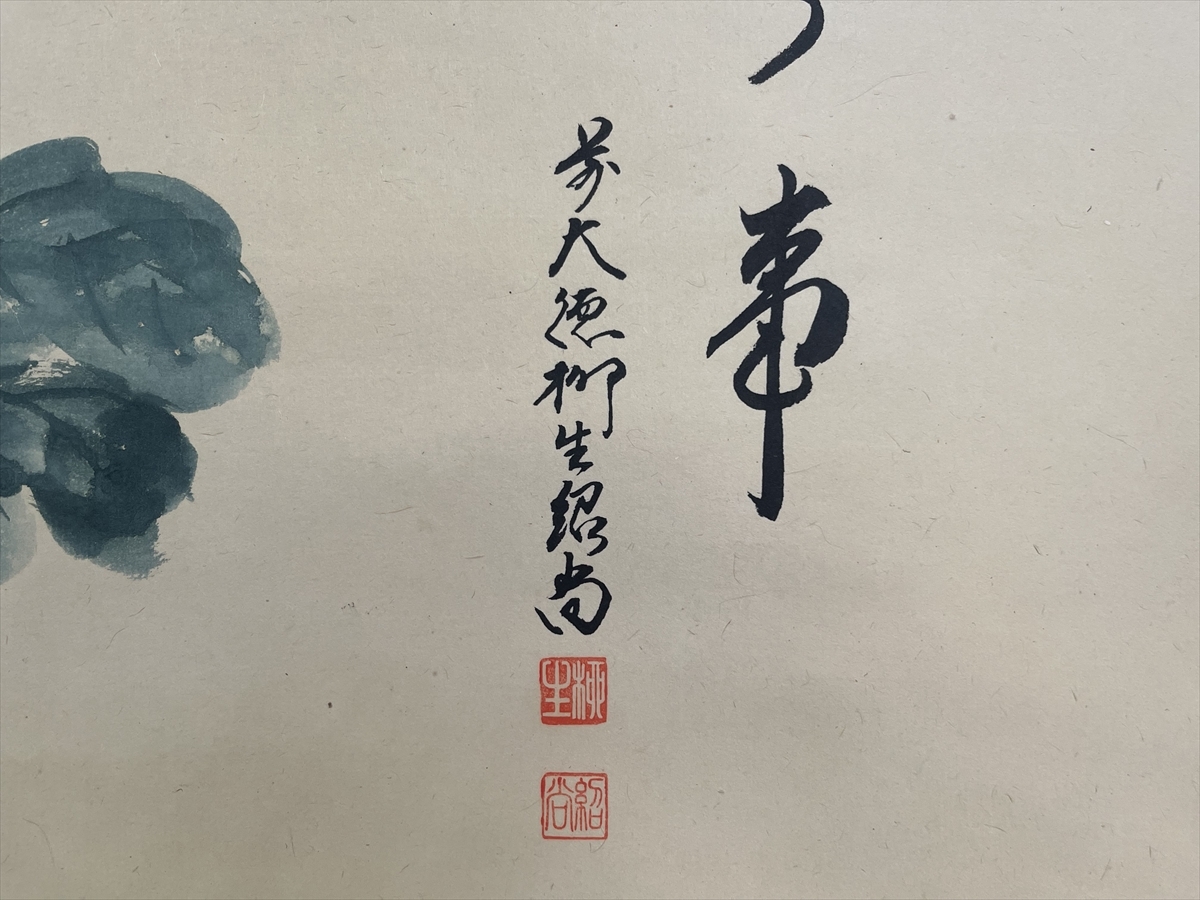 事
前大徳柳生紹尚
柳生
紹尚